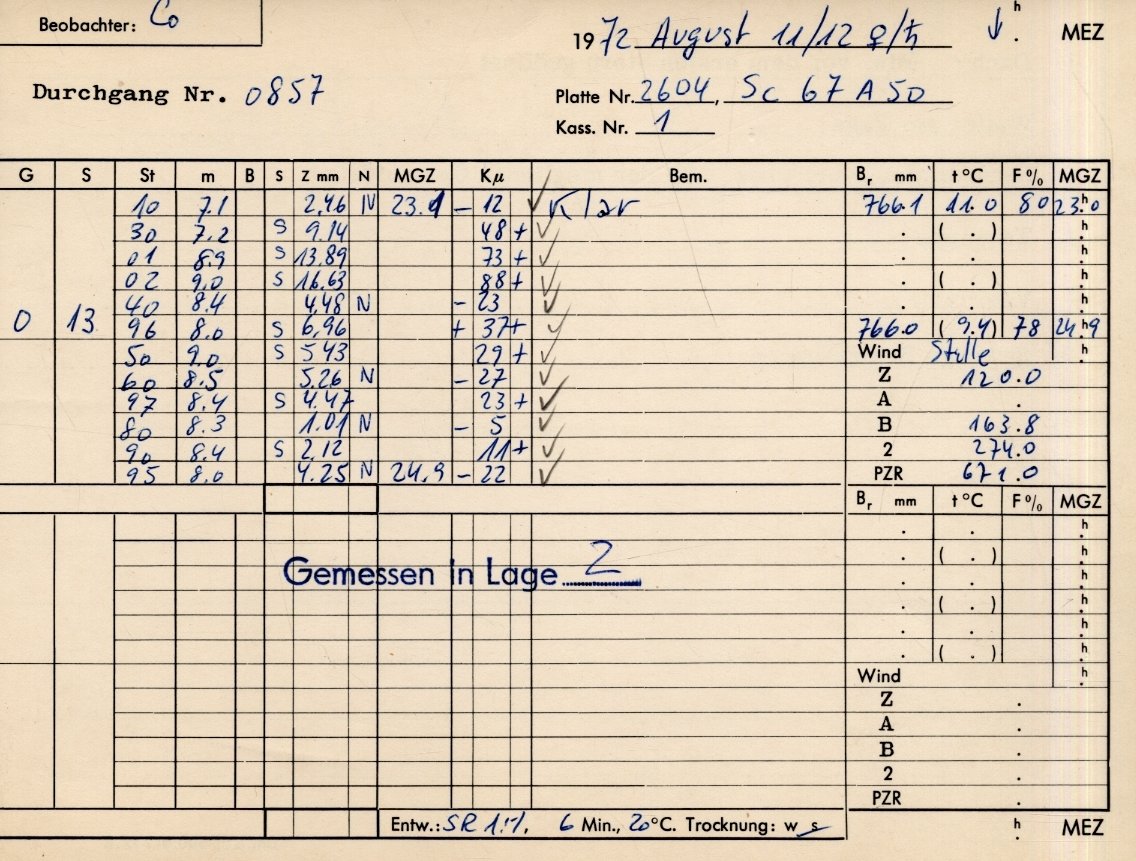 Beobachter: Co
1972 August 11/12 ♀/♄ ↓ . h MEZ
Durchgang Nr. 0857
Platte Nr. 2604, Sc 67 A 50
Kass. Nr. 1
G S St m B S Z mm N MGZ Kμ Bem. Br mm t °C F % MGZ
10 7.1 2.46 N 23.1 - 12 ✓ Klar 766.1 11.0 80 23.h0
30 7.2 S 9.14 48 + ✓ . ( . ) h.
01 8.9 S 13.89 73 + ✓ . . h.
02 9.0 S 16.63 88 + ✓ . ( . ) h.
40 8.4 4.48 N - 23 ✓ . . h.
0 13 96 8.0 S 6.96 + 37+ ✓ 766.0 ( 9.4) 78 24.h9
50 9.0 S 5.43 29 + ✓ Wind Stille h.
60 8.5 5.26 N - 27 ✓ Z 120.0
97 8.4 S 4.47 23 + ✓ A .
80 8.3 1.01 N - 5 ✓ B 163.8
90 8.4 S 2.12 11+ ✓ 2 274.0
95 8.0 4.25 N 24.9 - 22 ✓ PZR 671.0
Br mm t °C F % MGZ
. . h.
Gemessen in Lage 2 . ( . ) h.
. . h.
. ( . ) h.
. . h.
. ( . ) h.
Wind h.
Z .
A .
B .
2 .
PZR .
Entw.: SR 1:1, 6 Min., 20°C. Trocknung: w s h. MEZ